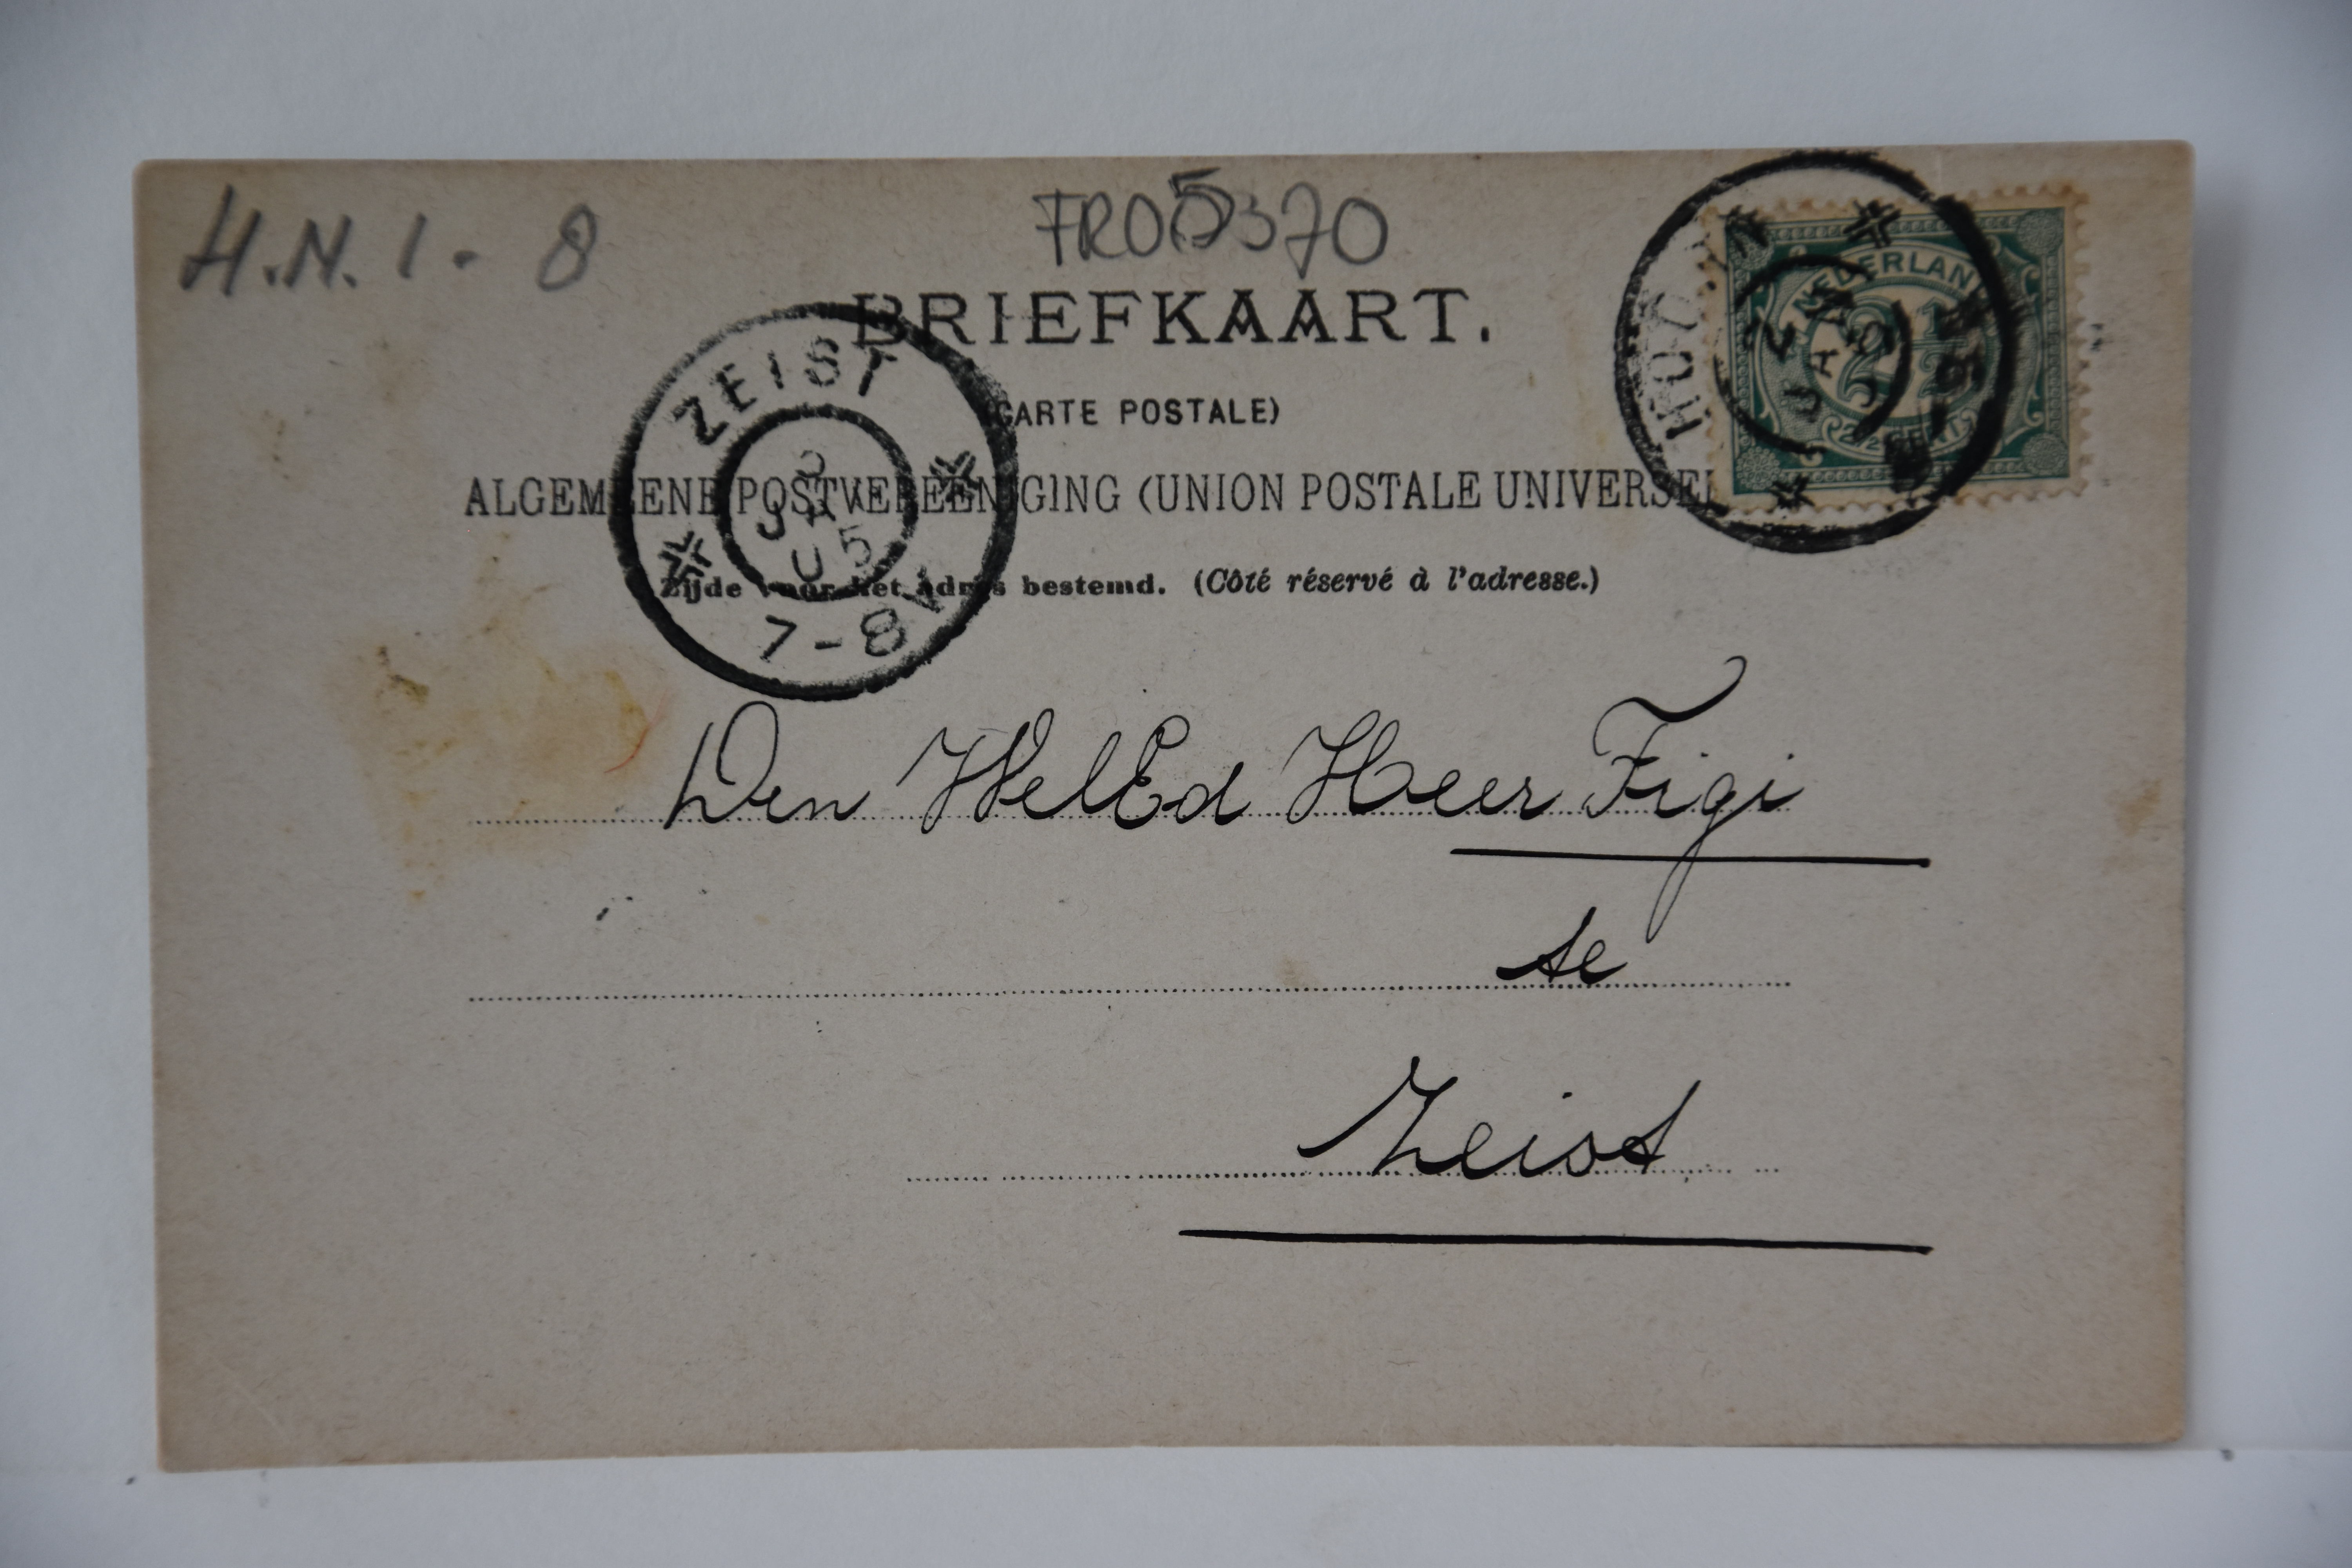 H.N. 1 - 8
FRO5370
BRIEFKAART.
(CARTE POSTALE)
ALGEMEENE POSTVEREENIGING (UNION POSTALE UNIVERSEL
Zijde voor het adres bestemd. (Côté réservé à l'adresse.)
ZEIST
3
JAN
05
7-8
NEDERLAND
2 1/2
2 1/2 CENT
HOUTEN
JAN
Den WelEd Heer Figi
te
Zeist